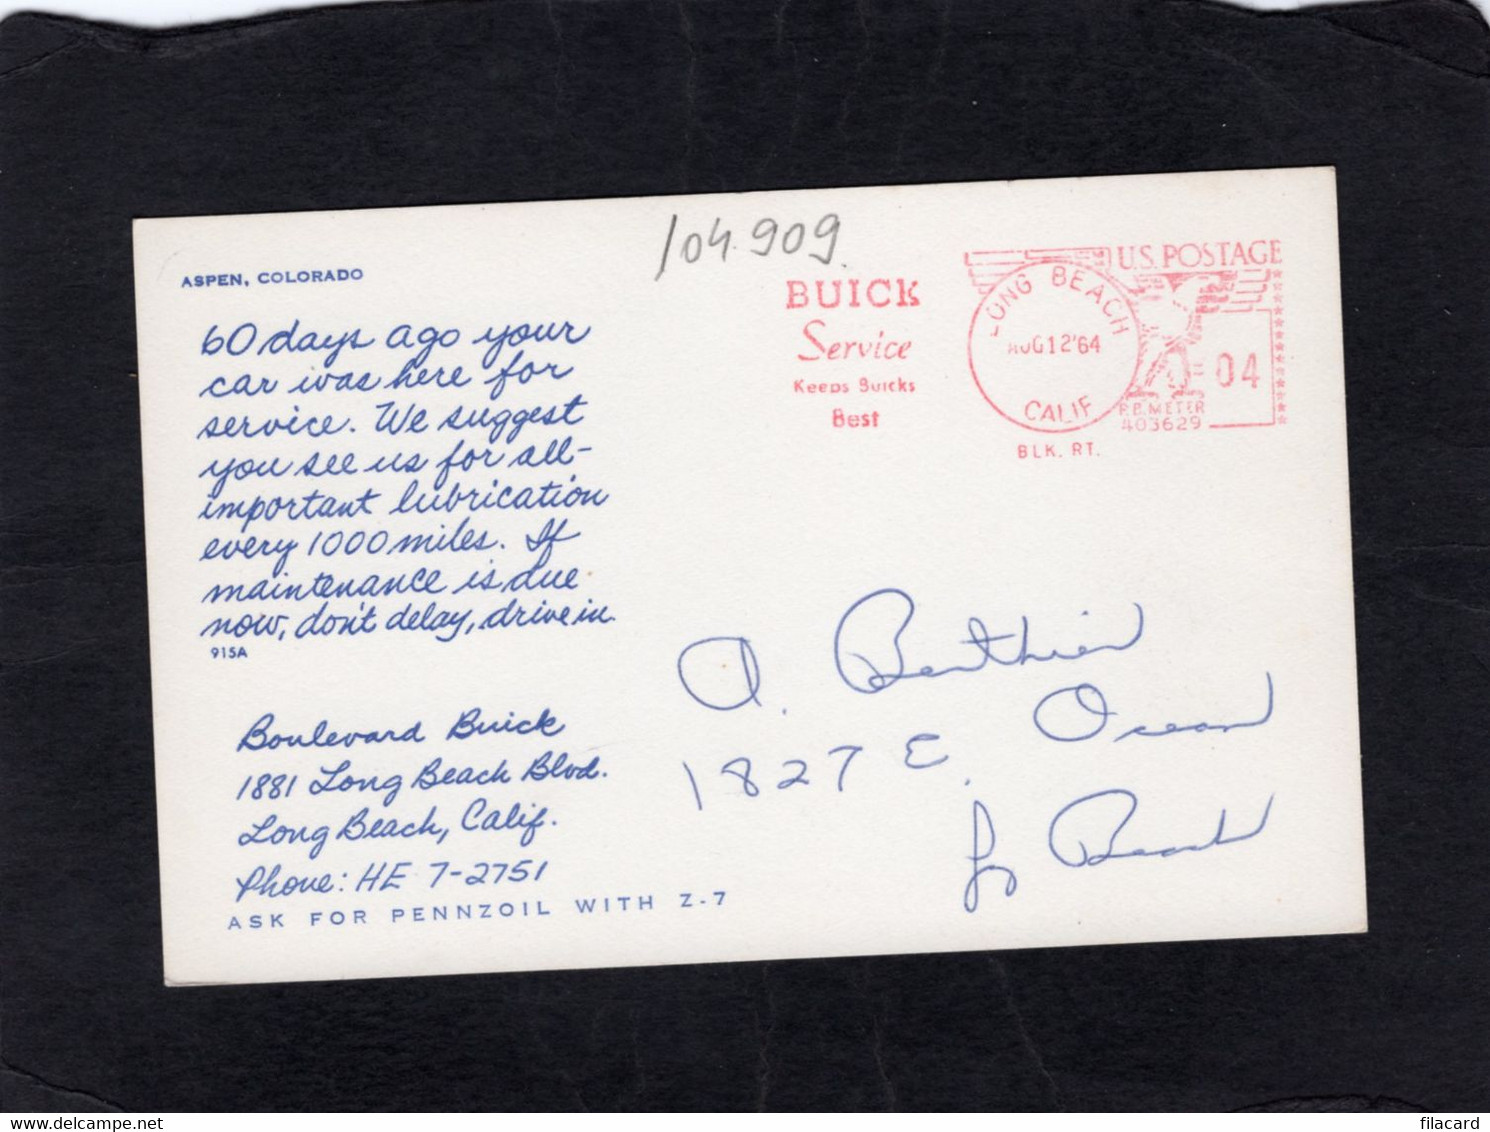 104.909.
ASPEN, COLORADO
60 days ago your
car was here for
service. We suggest
you see us for all-
important lubrication
every 1000 miles. If
maintenance is due
now, don't delay, drive in.
915A
Boulevard Buick
1881 Long Beach Blvd.
Long Beach, Calif.
Phone: HE 7-2751
ASK FOR PENNZOIL WITH Z-7
BUICK
Service
Keeps Buicks
Best
LONG BEACH
AUG 12 '64
CALIF
BLK. RT.
U.S. POSTAGE
04
P.B. METER
403629
A. Berthier
1827 E. Ocean
Lg Beach
filacard